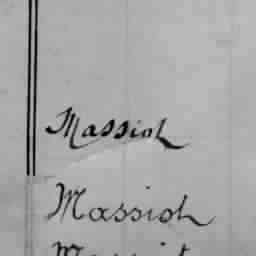 Massioh
Massioh